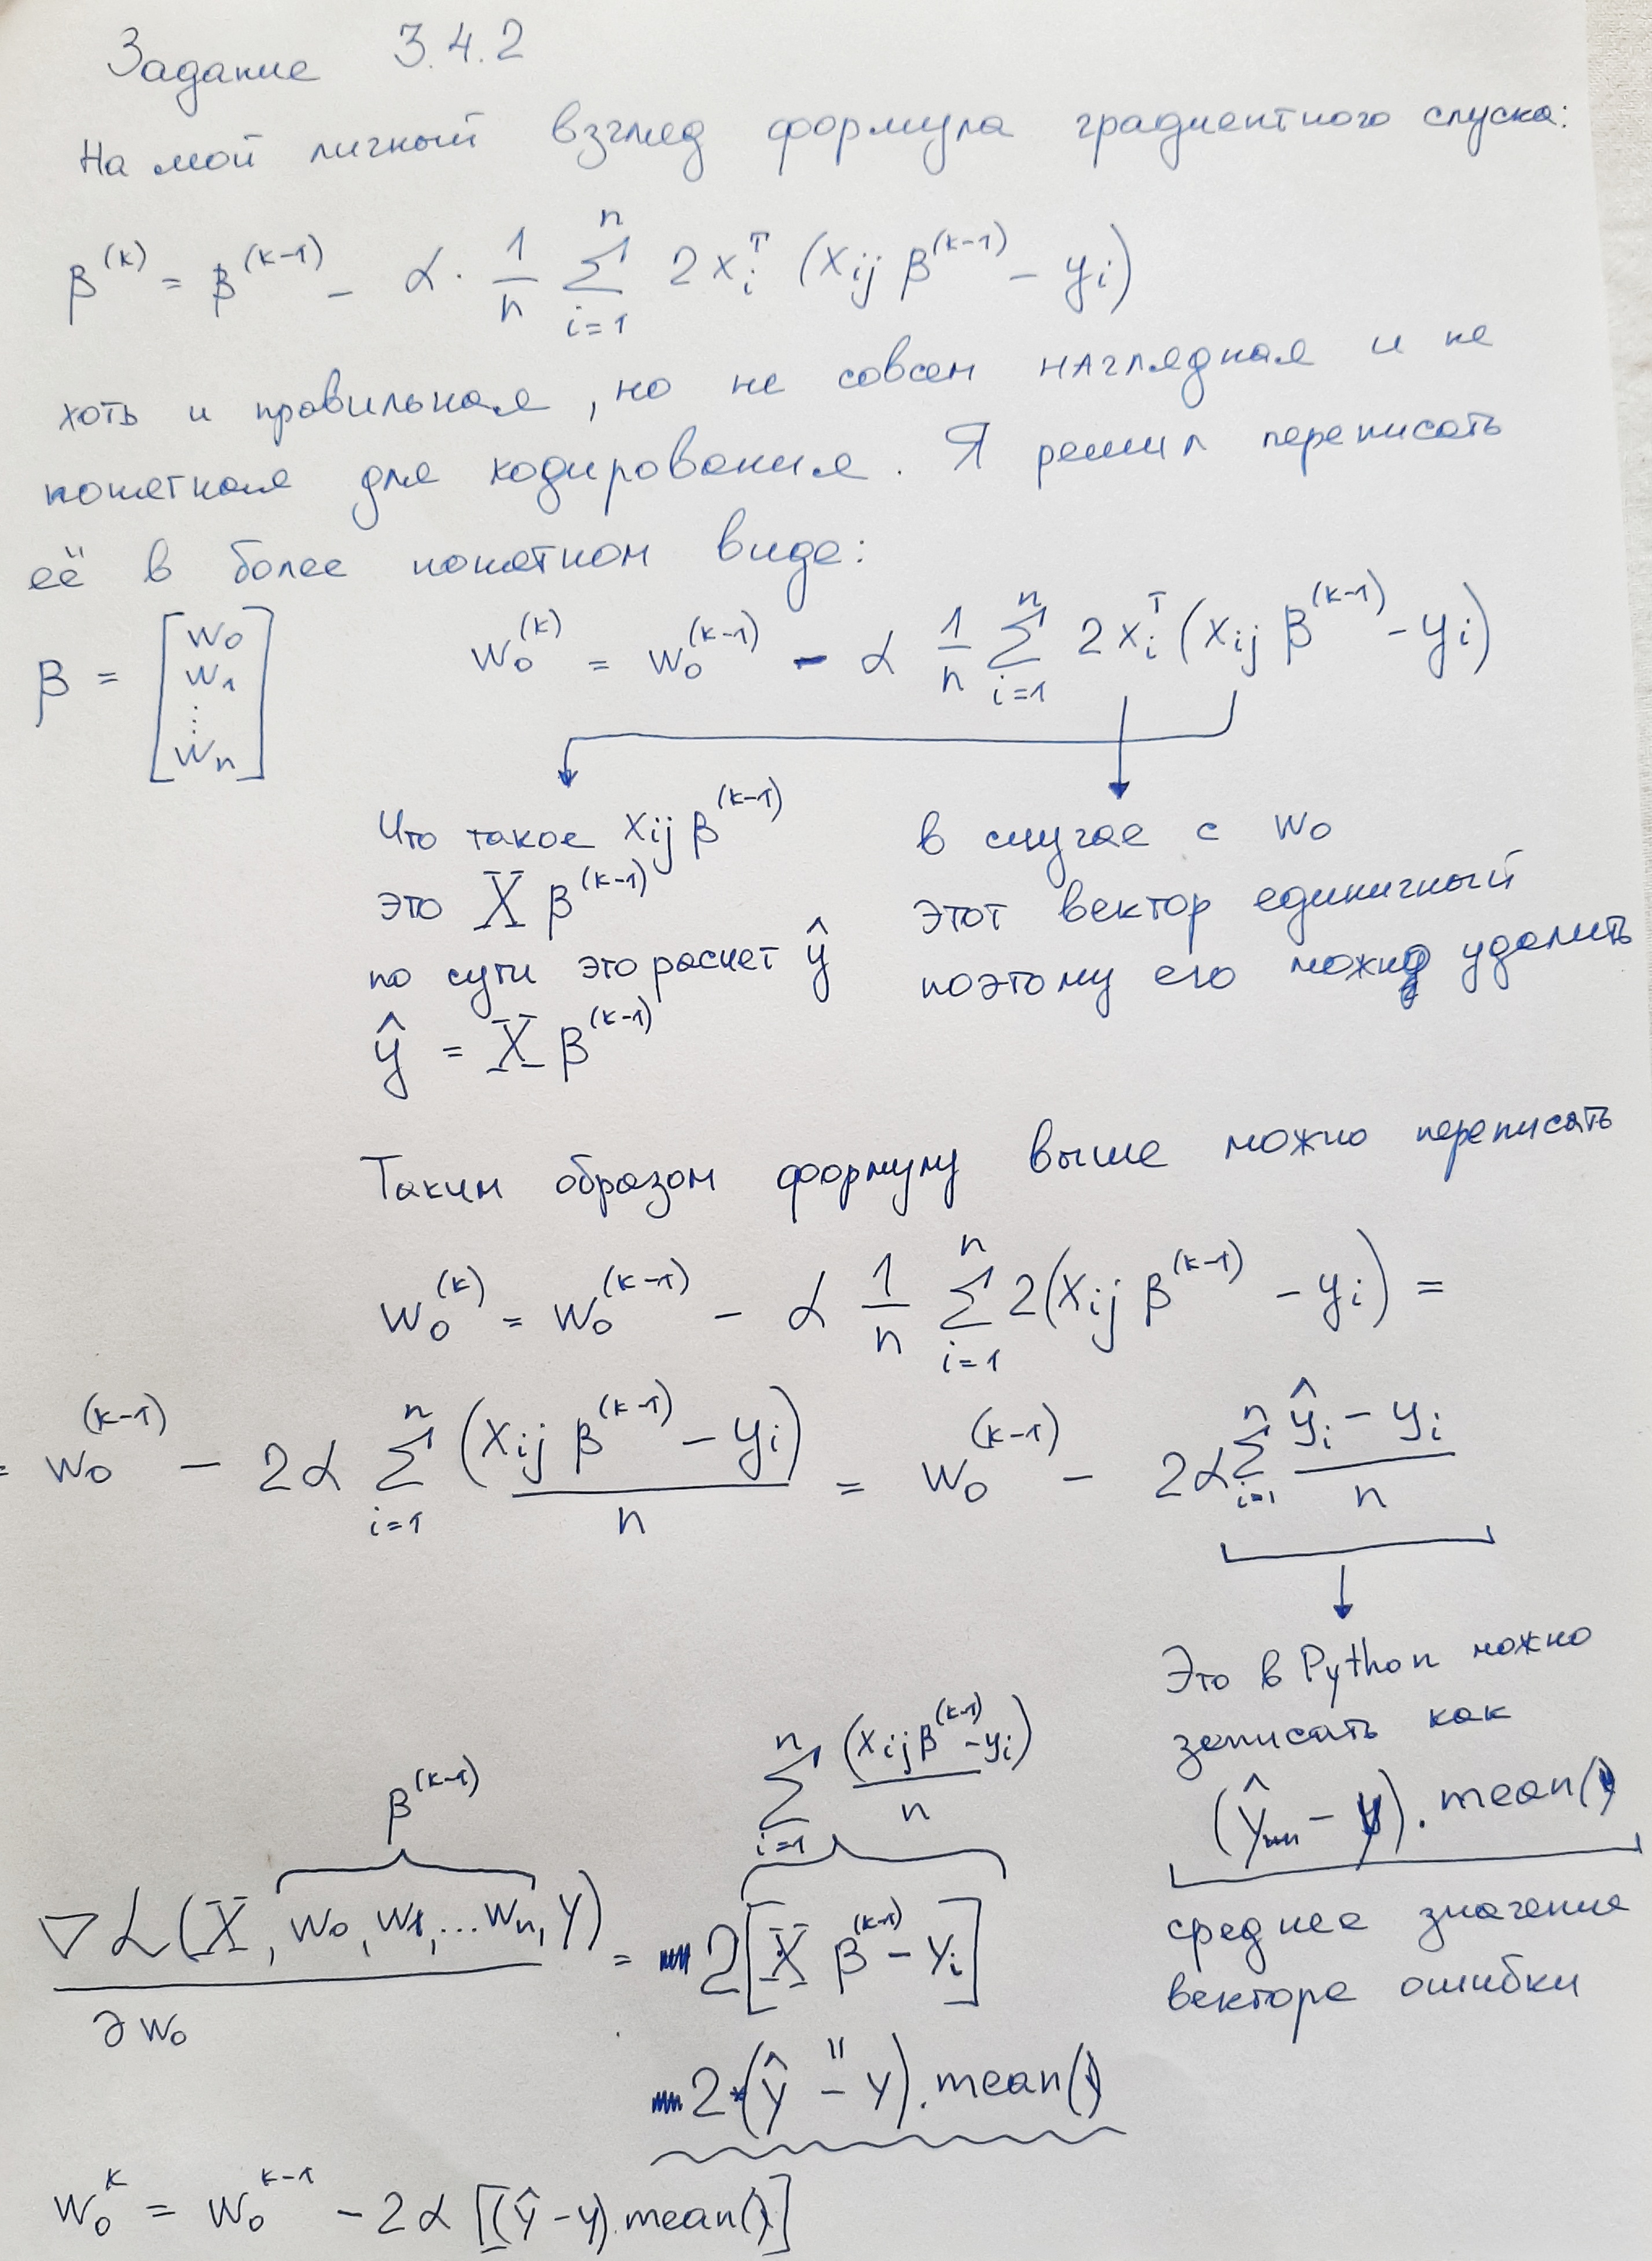 Задание 3.4.2
На мой личный взгляд формула градиентного спуска:
β^(k) = β^(k-1) - α · 1/n Σ_{i=1}^{n} 2x_i^T (x_ij β^(k-1) - y_i)
хоть и правильная, но не совсем наглядная и не
понятная для кодирования. Я решил переписать
её в более понятном виде:
β = [w_0 w_1 ⋮ w_n]
w_0^(k) = w_0^(k-1) - α 1/n Σ_{i=1}^{n} 2x_i^T (x_ij β^(k-1) - y_i)
Что такое x_ij β^(k-1)
это X β^(k-1)
по сути это расчет ŷ
ŷ = X β^(k-1)
в случае с w_0
этот вектор единичный
поэтому его можно удалить
Таким образом формулу выше можно переписать
w_0^(k) = w_0^(k-1) - α 1/n Σ_{i=1}^{n} 2(x_ij β^(k-1) - y_i) =
= w_0^(k-1) - 2α Σ_{i=1}^{n} (x_ij β^(k-1) - y_i)/n = w_0^(k-1) - 2α Σ_{i=1}^{n} (ŷ_i - y_i)/n
Это в Python можно
записать как
(ŷ - y).mean()
среднее значение
вектора ошибки
β^(k-1)
Σ_{i=1}^{n} (x_ij β^(k-1) - y_i)/n
∇L(X, w_0, w_1, ... w_n, y)/∂w_0 = 2[X β^(k-1) - y_i]
"
2*(ŷ - y).mean()
w_0^k = w_0^k-1 - 2α [(ŷ - y).mean()]